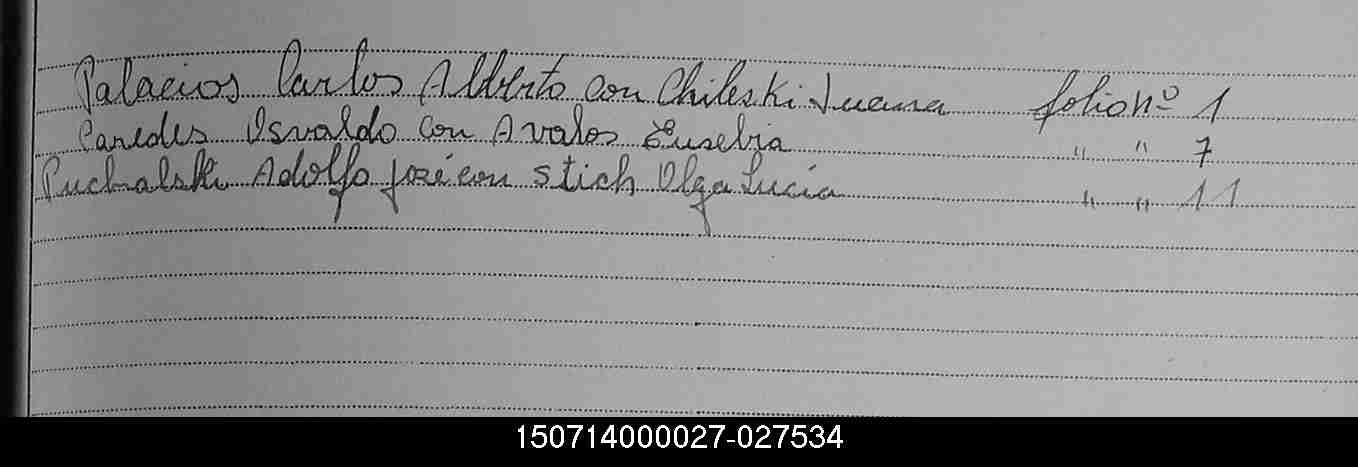 Palacios Carlos Alberto con Chileski Juana folio nº 1
Paredes Osvaldo con Avalos Eusebia " " 7
Puchalski Adolfo José con Stich Olga Lucía " " 11
150714000027-027534